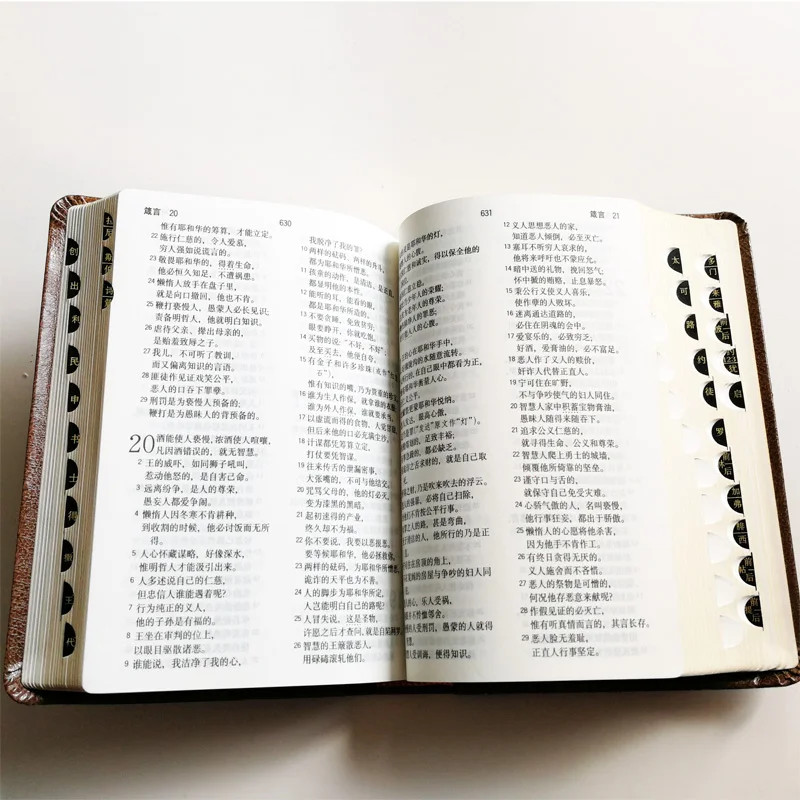 箴言 20
630
惟有耶和华的筹算，才能立定。
22 施行仁慈的，令人爱慕，
穷人强如说谎言的。
23 敬畏耶和华的，得着生命，
他必恒久知足，不遭祸患。
24 懒惰人放手在盘子里，
就是向口撤回，他也不肯。
25 鞭打亵慢人，愚蒙人必长见识；
责备明哲人，他就明白知识。
26 虐待父亲、撵出母亲的，
是贻羞致辱之子。
27 我儿，不可听了教训，
而又偏离知识的言语。
28 匪徒作见证戏笑公平，
恶人的口吞下罪孽。
29 刑罚是为亵慢人预备的；
鞭打是为愚昧人的背预备的。
20 酒能使人亵慢，浓酒使人喧嚷，
凡因酒错误的，就无智慧。
2 王的威吓，如同狮子吼叫，
惹动他怒的，是自害己命。
3 远离纷争，是人的尊荣，
愚妄人都爱争闹。
4 懒惰人因冬寒不肯耕种，
到收割的时候，他必讨饭而无所
得。
5 人心怀藏谋略，好像深水，
惟明哲人才能汲引出来。
6 人多述说自己的仁慈，
但忠信人谁能遇着呢？
7 行为纯正的义人，
他的子孙是有福的。
8 王坐在审判的位上，
以眼目驱散诸恶。
9 谁能说，我洁净了我的心，
我脱净了我的罪？
10 两样的砝码，两样的升斗，
都为耶和华所憎恶。
11 孩童的动作，是清洁，是正直，
都显明他的本性。
12 能听的耳，能看的眼，
都是耶和华所造的。
13 不要贪睡，免致贫穷；
眼要睁开，你就吃饱。
14 买物的说：“不好，不好”，
及至买去，他便自夸。
15 有金子和许多珍珠（
石”），
惟有知识的嘴，乃为贵重的
16 谁为生人作保，就拿谁的衣
谁为外人作保，谁就要承当。
17 以虚谎而得的食物，人觉甘
但后来他的口必充满尘沙。
18 计谋都凭筹算立定，
打仗要凭智谋。
19 往来传舌的泄漏密事，
大张嘴的，不可与他结交。
20 咒骂父母的，他的灯必灭，
变为漆黑的黑暗。
21 起初速得的产业，
终久却不为福。
22 你不要说，我要以恶报恶，
要等候耶和华，他必拯救你。
23 两样的砝码，为耶和华所憎
诡诈的天平也为不善。
24 人的脚步为耶和华所定，
人岂能明白自己的路呢？
25 人冒失说，这是圣物，
许愿之后才查问，就是自陷网罗
26 智慧的王簸散恶人，
用碌碡滚轧他们。
631
箴言 21
是耶和华的灯，
人的心腹。
和诚实，得以保全他的
为少年人的荣耀；
为老年人的尊荣。
人的罪恶；
人的心腹。
心在耶和华手中，
陇沟的水随意流转。
，在自己眼中都看为正，
华衡量人心。
公平，
耶和华悦纳。
，就是心傲，
（“发达”原文作“灯”）。
的，足致丰裕；
的，都必缺乏。
舌求财的，就是自己取
乃是吹来吹去的浮云。
，必将自己扫除，
不肯按公平行事。
路，甚是弯曲，
，他所行的乃是正
的角上，
的房屋与争吵的妇人同
心，乐人受祸，
不怜恤邻舍。
人受刑罚，愚蒙的人就得
人受训诲，便得知识。
12 义人思想恶人的家，
知道恶人倾倒，必至灭亡。
13 塞耳不听穷人哀求的，
他将来呼吁也不蒙应允。
14 暗中送的礼物，挽回怒气；
怀中搋的贿赂，止息暴怒。
15 秉公行义使义人喜乐，
使作孽的人败坏。
16 迷离通达道路的，
必住在阴魂的会中。
17 爱宴乐的，必致穷乏；
好酒，爱膏油的，必不富足。
18 恶人作了义人的赎价，
奸诈人代替正直人。
19 宁可住在旷野，
不与争吵使气的妇人同住。
20 智慧人家中积蓄宝物膏油，
愚昧人随得来随吞下。
21 追求公义仁慈的，
就寻得生命、公义和尊荣。
22 智慧人爬上勇士的城墙，
倾覆他所倚靠的坚垒。
23 谨守口与舌的，
就保守自己免受灾难。
24 心骄气傲的人，名叫亵慢，
他行事狂妄，都出于骄傲。
25 懒惰人的心愿将他杀害，
因为他手不肯作工。
26 有终日贪得无厌的，
义人施舍而不吝惜。
27 恶人的祭物是可憎的，
何况他存恶意来献呢？
28 作假见证的必灭亡，
惟有听真情而言的，其言长存。
29 恶人脸无羞耻，
正直人行事坚定。
创
出
利
民
申
书
士
得
王
代
太
可
路
约
徒
罗
加
弗
西
门
启
犹